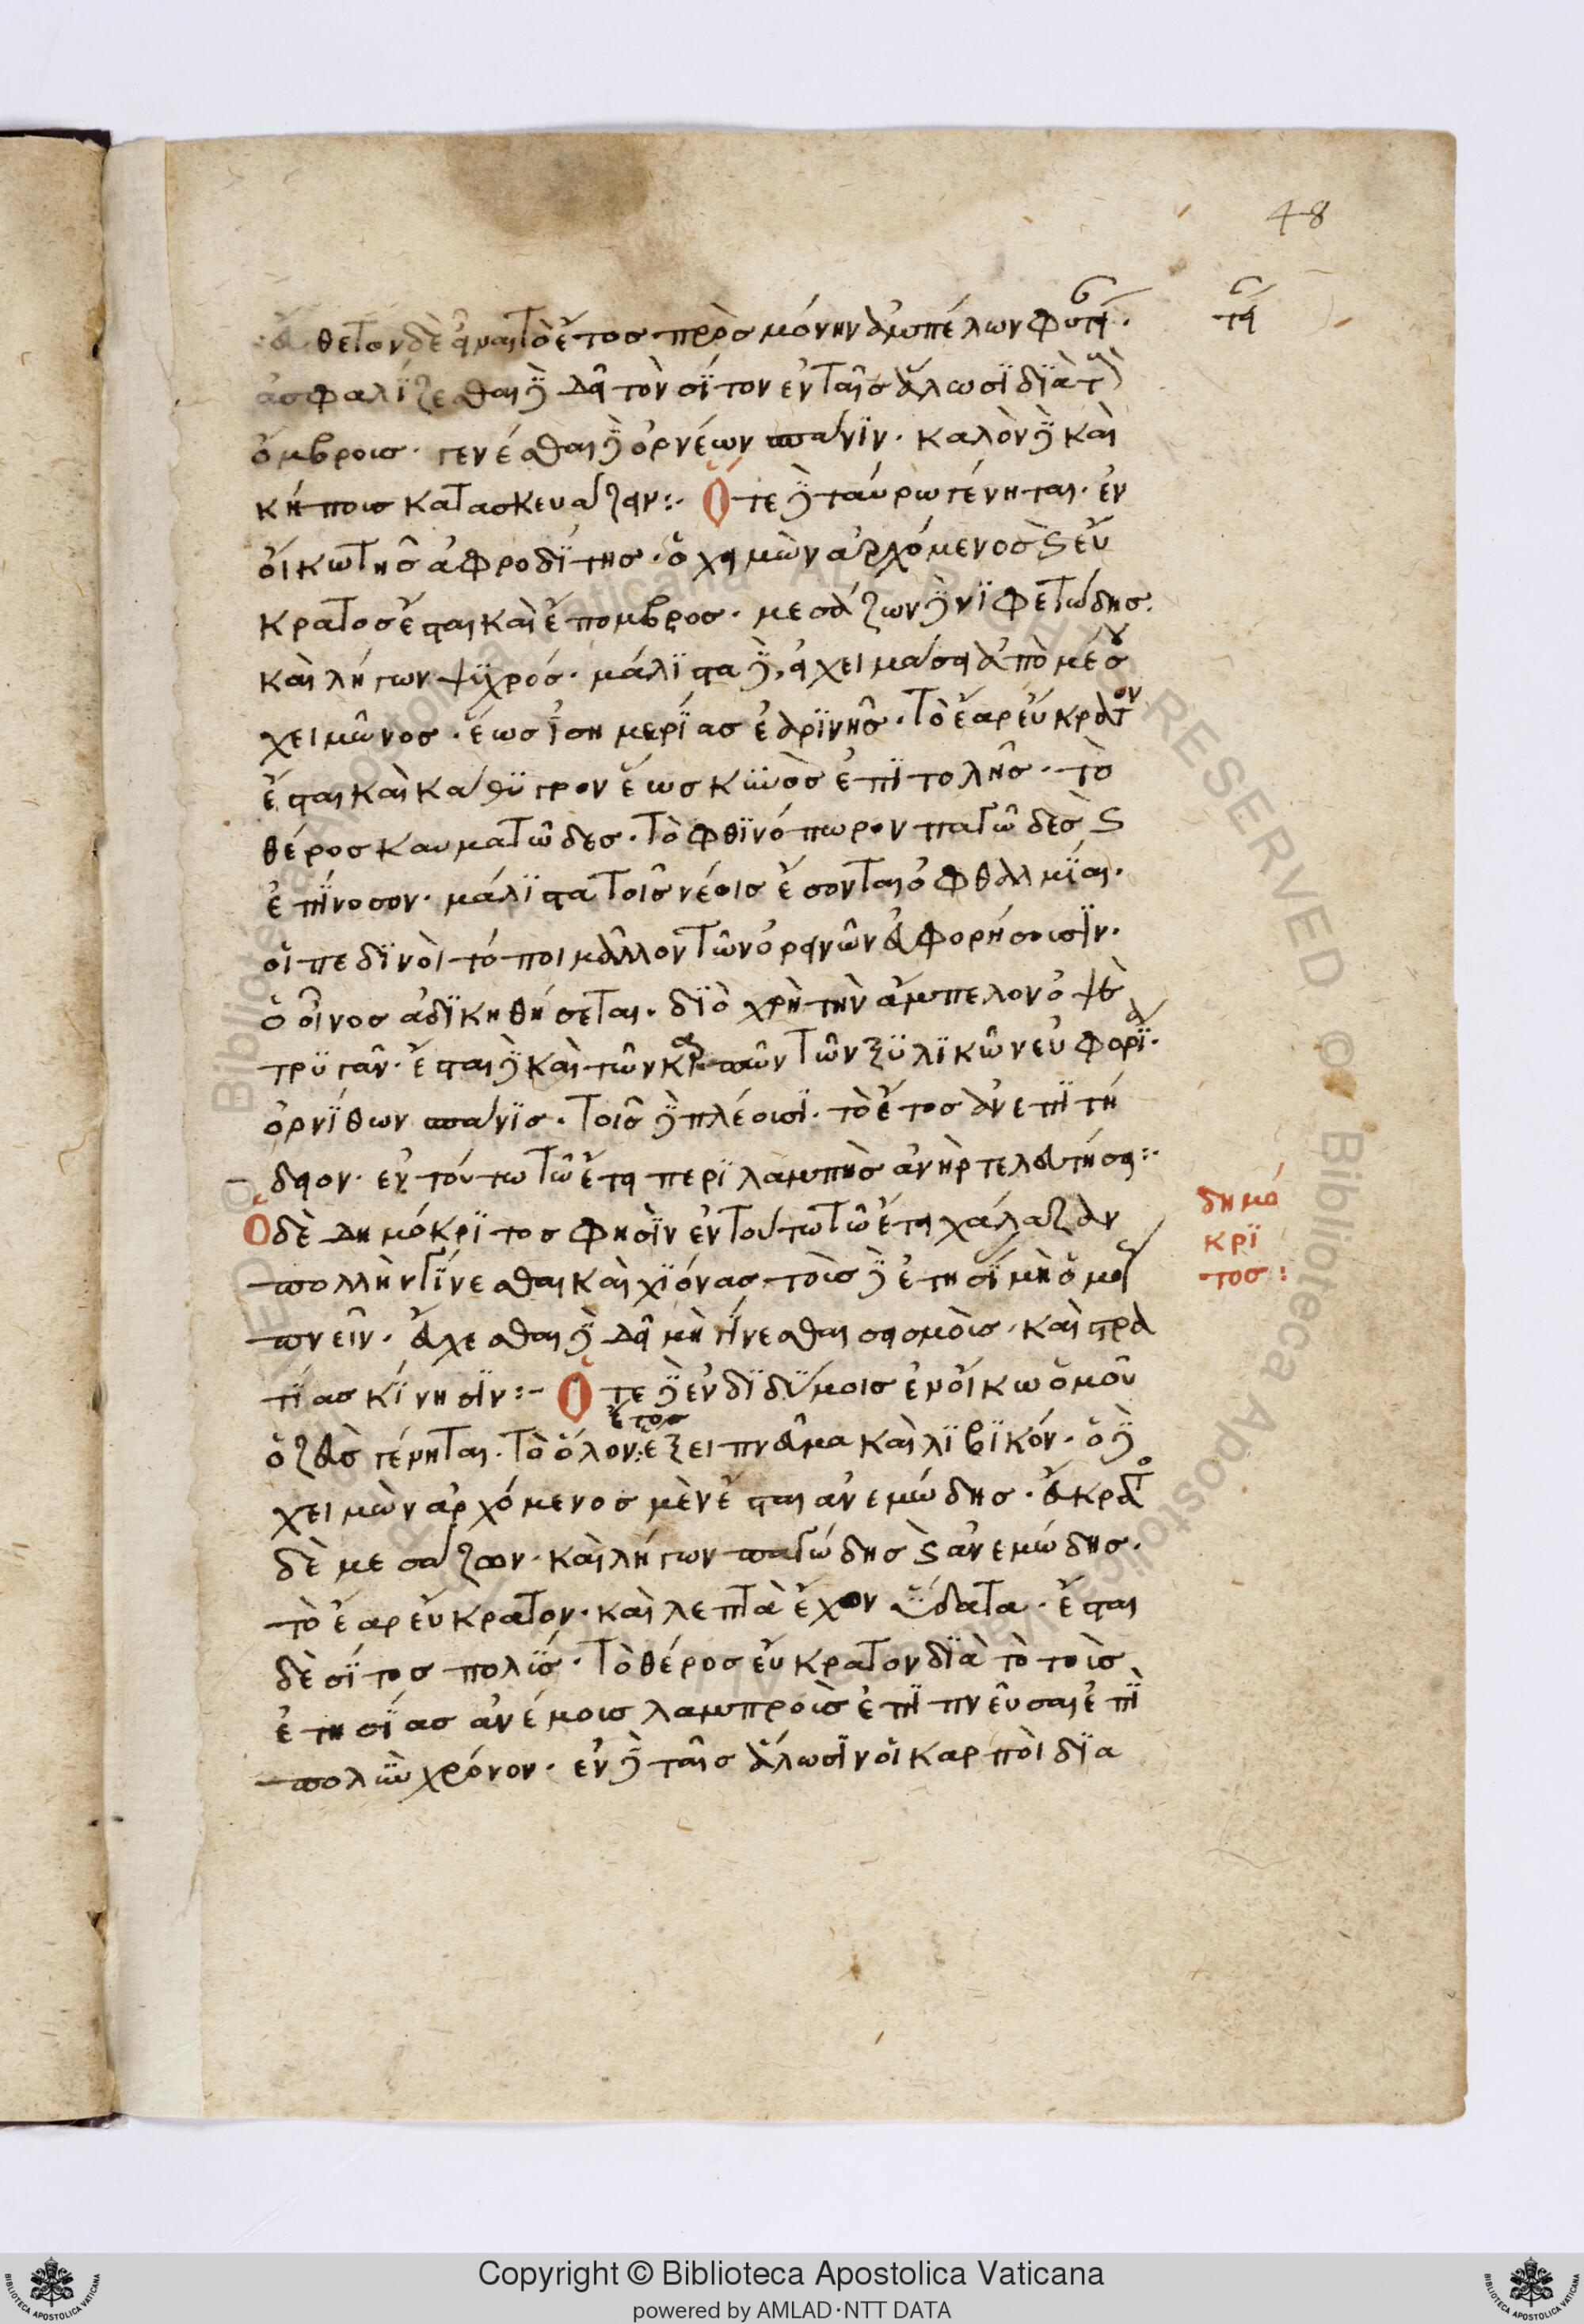 48
εὔθετον δὲ εἶναι τὸ ἔτος πρὸς μόνην ἀμπέλων φυτεί.
τεί
ἀσφαλίζεσθαι δὲ δεῖ τὸν σῖτον ἐν ταῖς ἅλωσι διὰ τοὺς
ὄμβρους. γενέσθαι δὲ ὀρνέων σπάνιν. καλὸν δὲ καὶ
κήποις κατασκευάζειν:· Ὅτε δὲ ταύρω γένηται. ἐν
οἴκω τῆς ἀφροδίτης. ὁ χειμὼν ἀρχόμενος καὶ εὔ
κρατος ἔσται καὶ ἔπομβρος. μεσάζων δὲ νιφετώδης.
καὶ λήγων ψυχρός. μάλιστα δὲ, χειμάσει ἀπὸ μέσου
χειμῶνος. ἕως ἰσημερίας ἐαρινῆς. τὸ ἔαρ εὔκρατον
ἔσται καὶ κάθυγρον ἕως κυνὸς ἐπιτολῆς. τὸ
θέρος καυματῶδες. τὸ φθινόπωρον πατῶδες καὶ
ἐπίνοσον. μάλιστα τοῖς νέοις ἔσονται ὀφθαλμίαι.
οἱ πεδινοὶ τόποι μᾶλλον τῶν ὀρεινῶν εὐφορήσουσιν.
ὁ οἶνος ἀδικηθήσεται. διὸ χρὴ τὴν ἄμπελον ὀψὲ
τρυγᾶν. ἔσται δὲ καὶ τῶν καρπῶν τῶν ξυλικῶν εὐφορία.
ὀρνίθων σπάνις. τοῖς δὲ πλέουσι. τὸ ἔτος ἀνεπιτή
δειον. ἐν τούτω τῶ ἔτει περιλαμπὴς ἀνὴρ τελευτήσει:·
Ὁ δὲ δημόκριτος φησὶν ἐν τούτω τῶ ἔτει χάλαζαν
δημό
κρι
τος:
πολλὴν γίνεσθαι καὶ χιόνας τοῖς δὲ ἐτησί μὴ ὁμοῦ
πνεῖν. εὔχεσθαι δὲ δεῖ μὴ γίνεσθαι σεισμοῖς. καὶ στρα
τίας κίνησιν:- Ὅτε δὲ ἐν διδύμοις ἐν οἴκω ὁμοῦ
ὁ ζεὺς γένηται. τὸ ὅλον ἔτος ἕξει πνεῦμα καὶ λιβικόν. ὁ δὲ
χειμὼν ἀρχόμενος μὲν ἔσται ἀνεμώδης. εὔκρατο
δὲ μεσάζων. καὶ λήγων πατώδης καὶ ἀνεμώδης.
τὸ ἔαρ εὔκρατον. καὶ λεπτὰ ἔχον ὕδατα. ἔσται
δὲ σῖτος πολύς. τὸ θέρος εὔκρατον διὰ τὸ τοὺς
ἐτησίας ἀνέμοις λαμπροῖς ἐπιπνεῦσαι ἐπὶ
πολὺν χρόνον. ἐν δὲ ταῖς ἅλωσιν οἱ καρποὶ δια
Copyright © Biblioteca Apostolica Vaticana
powered by AMLAD·NTT DATA